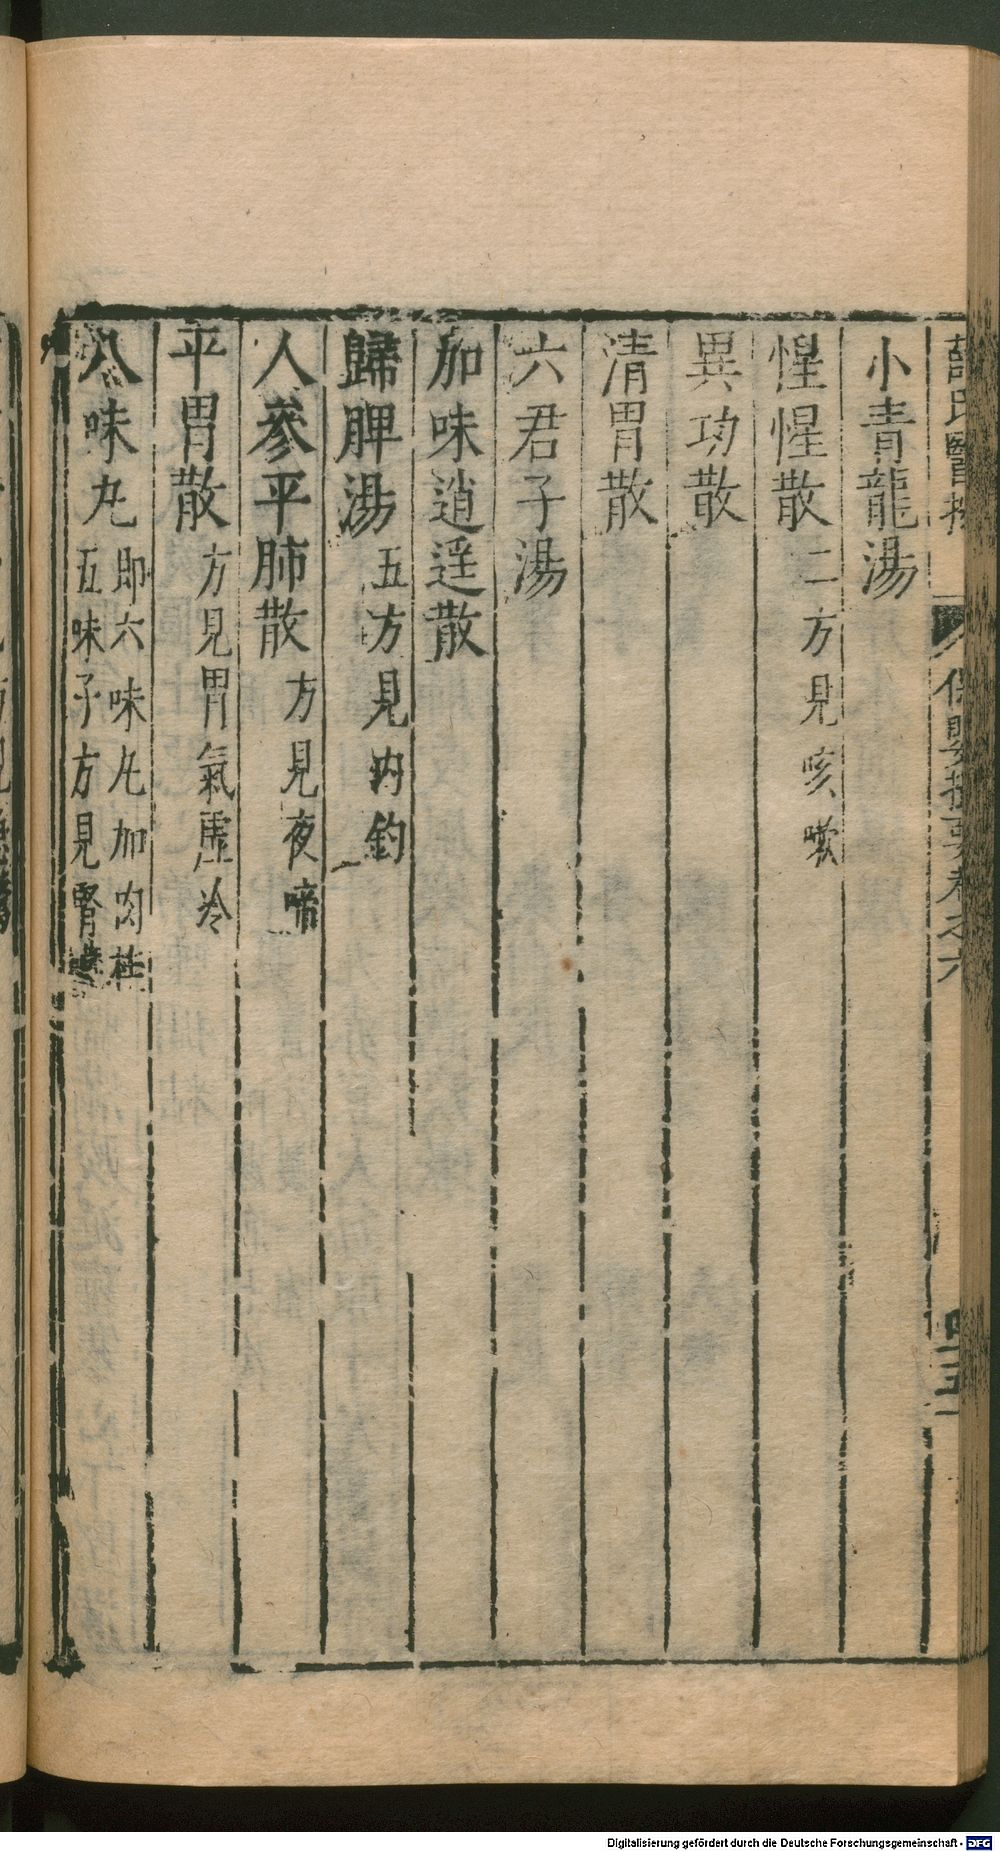 小青龍湯
惺惺散二方見咳嗽
異功散
清胃散
六君子湯
加味逍遥散
歸脾湯五方見内釣
人參平肺散方見夜啼
平胃散方見胃氣虛冷
八味丸即六味丸加肉桂
五味子方見腎
保嬰撮要卷之六
Digitalisierung gefördert durch die Deutsche Forschungsgemeinschaft - DFG